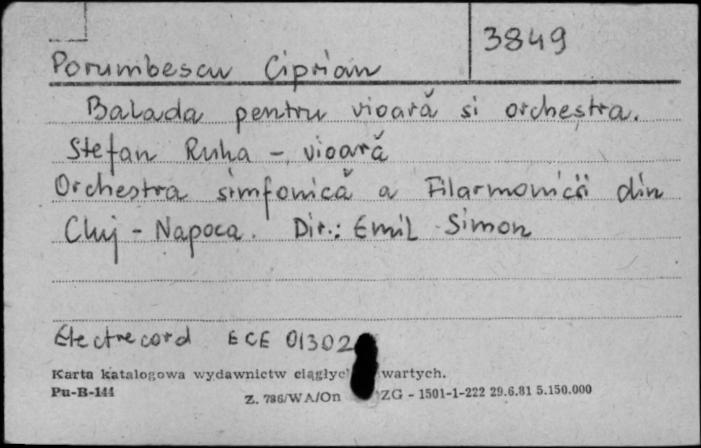 3849
Porumbescu Ciprian
Balada pentru vioară si orchestra.
Stefan Ruha - vioară
Orchestra simfonică a Filarmonicii din
Cluj - Napoca. Dir.: Emil Simon
Electrecord ECE 01302
Karta katalogowa wydawnictw ciągłyc wartych.
Pu-B-144
Z. 786/WA/On ZG - 1501-1-222 29.6.81 5.150.000